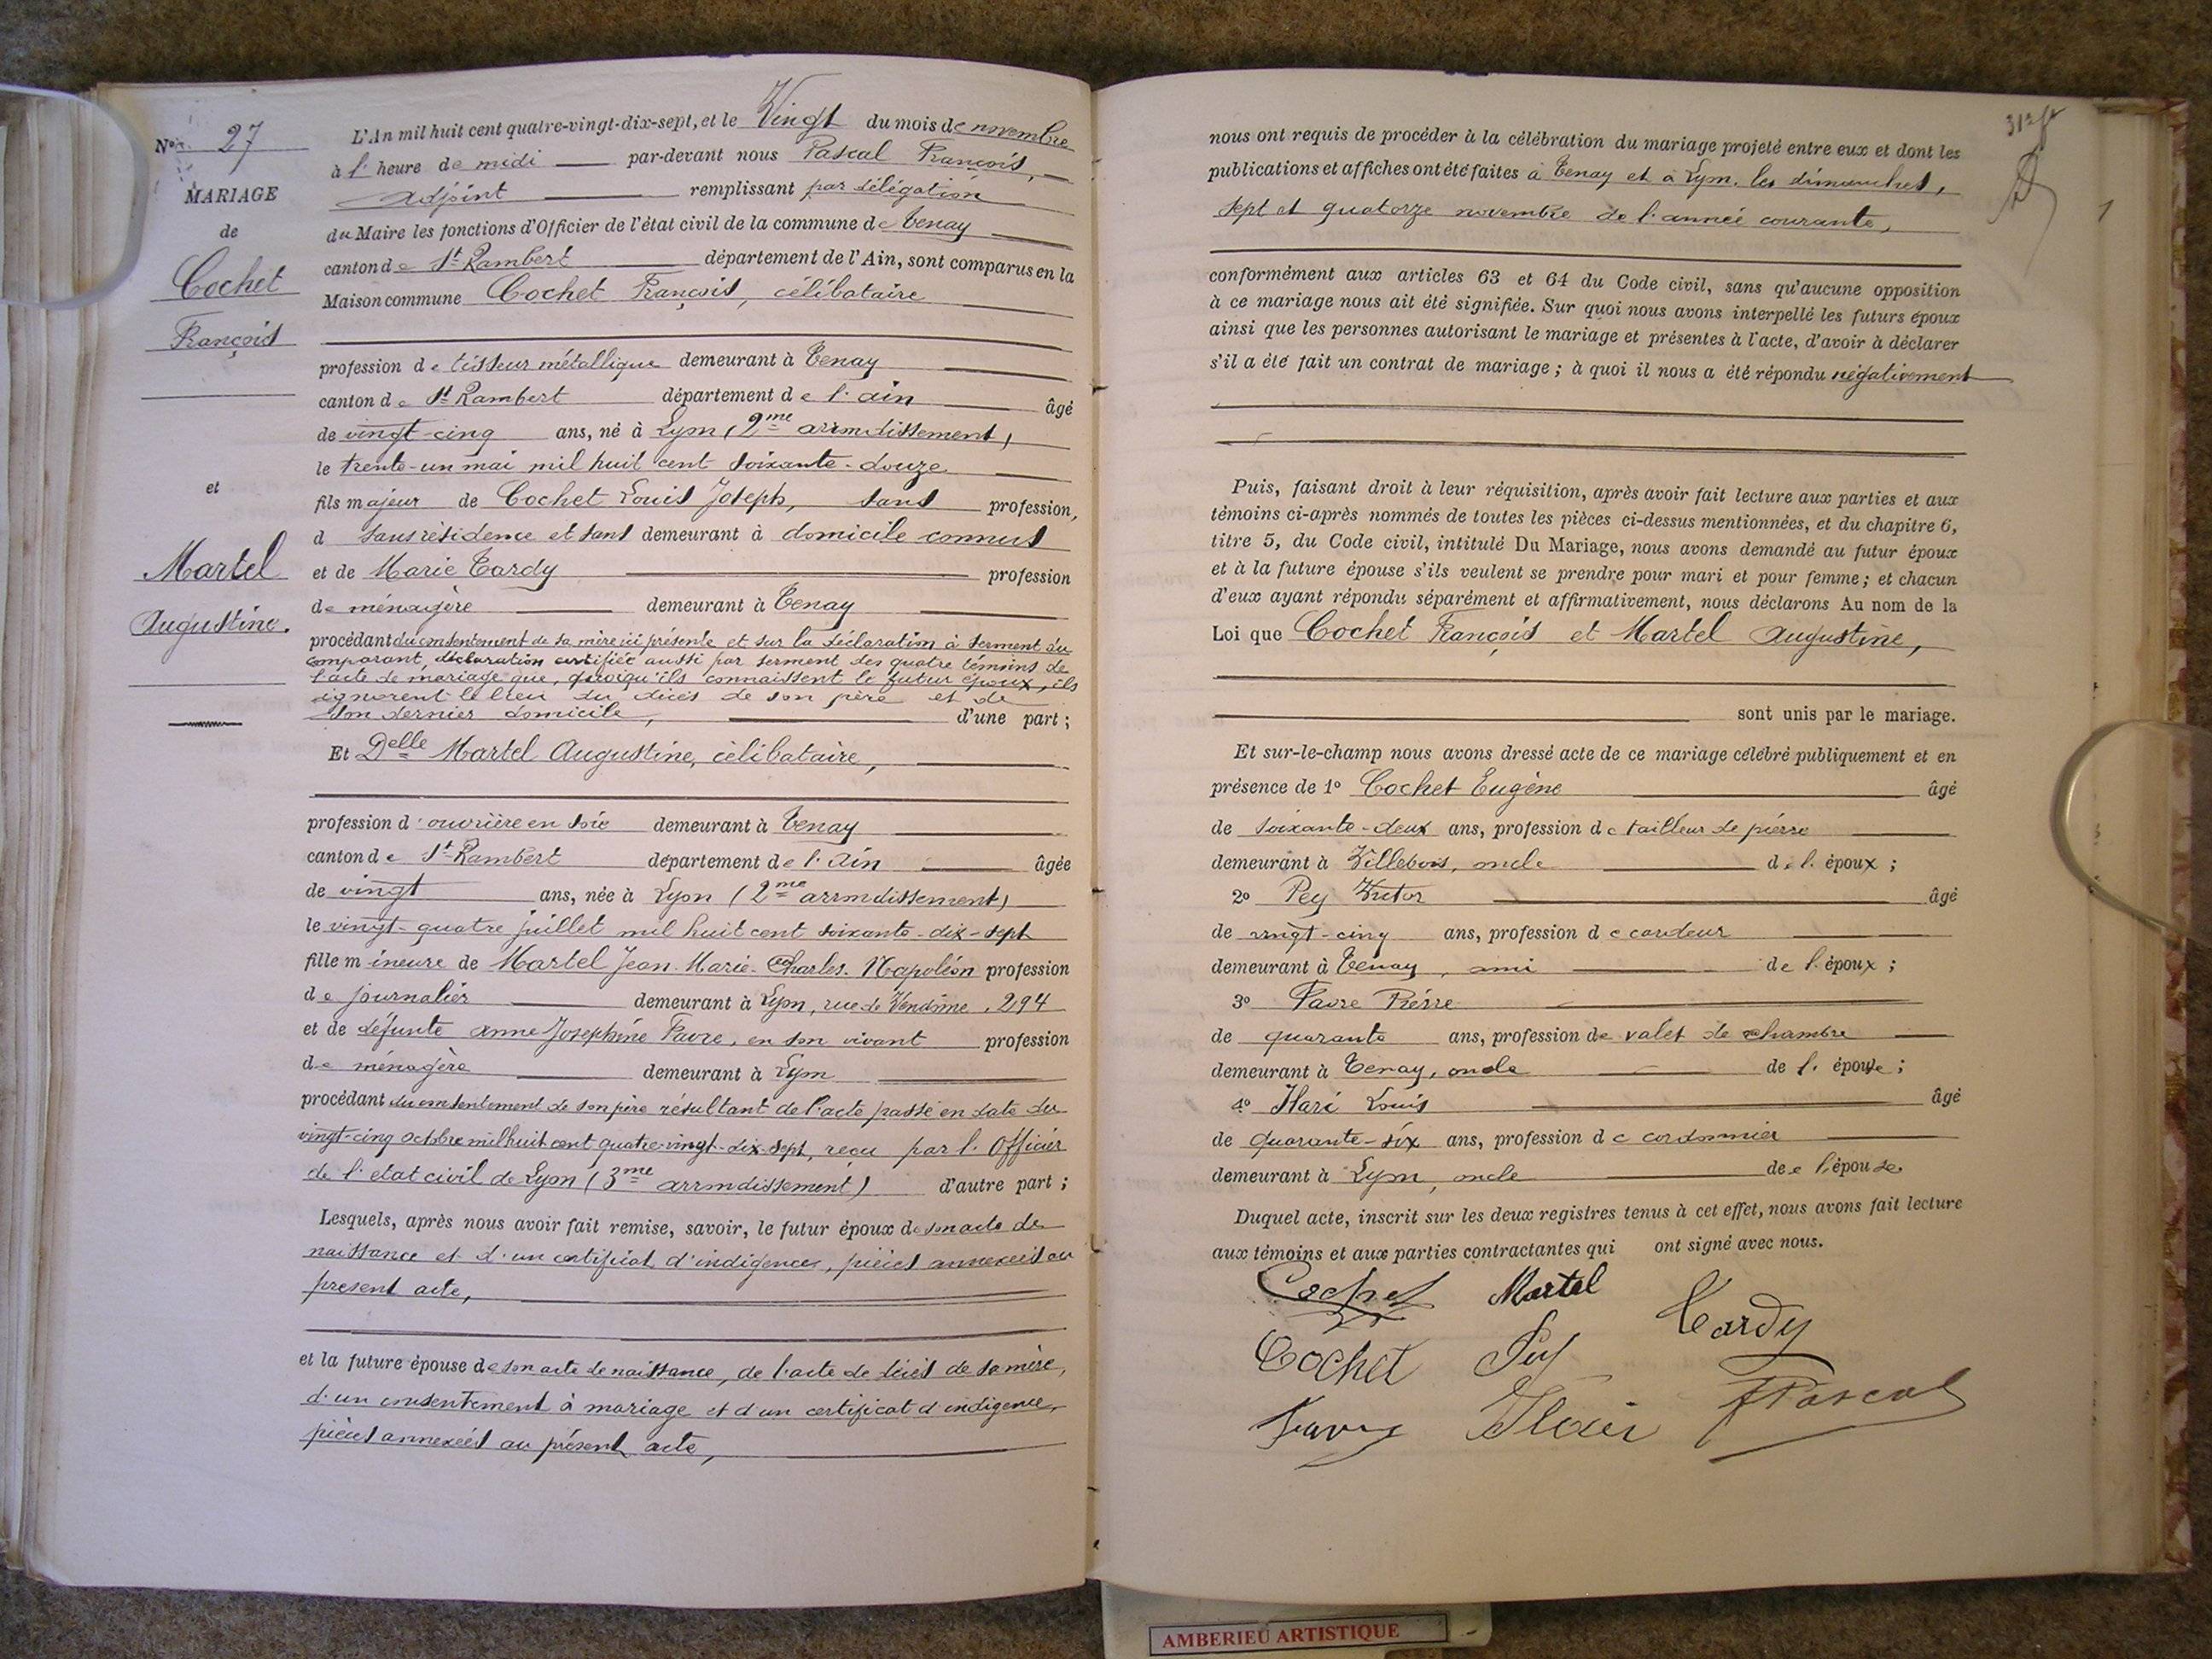 N° 27
MARIAGE
de
Cochet
François
et
Martel
Augustine.
L'An mil huit cent quatre-vingt-dix-sept, et le Vingt du mois de novembre
à l'heure de midi par-devant nous Pascal François,
adjoint remplissant par délégation
du Maire les fonctions d'Officier de l'état civil de la commune de Tenay
canton de St Rambert département de l'Ain, sont comparus en la
Maison commune Cochet François, célibataire
profession de tisseur métallique demeurant à Tenay
canton de St Rambert département de l'ain âgé
de vingt-cinq ans, né à Lyon (2me arrondissement)
le trente-un mai mil huit cent soixante-douze
fils majeur de Cochet Louis Joseph, sans profession,
d sans résidence et sans demeurant à domicile connus
et de Marie Tardy profession
de ménagère demeurant à Tenay
procédant du consentement de sa mère ici présente et sur la déclaration à serment du
comparant, déclaration certifiée aussi par serment des quatre témoins de
l'acte de mariage que, quoiqu'ils connaissent le futur époux, ils
ignorent le lieu du décès de son père et de
son dernier domicile, d'une part ;
Et Delle Martel Augustine, célibataire,
profession d'ouvrière en soie demeurant à Tenay
canton de St Rambert département de l'Ain âgée
de vingt ans, née à Lyon (2me arrondissement)
le vingt-quatre juillet mil huit cent soixante-dix-sept
fille mineure de Martel Jean-Marie-Charles-Napoléon profession
de journalier demeurant à Lyon, rue de Vendôme, 294
et de défunte Anne Josephine Favre, en son vivant profession
de ménagère demeurant à Lyon
procédant du consentement de son père résultant de l'acte passé en date du
vingt-cinq octobre mil huit cent quatre-vingt-dix-sept, reçu par l'Officier
de l'etat civil de Lyon (3me arrondissement) d'autre part ;
Lesquels, après nous avoir fait remise, savoir, le futur époux de son acte de
naissance et d'un certificat d'indigence, pièces annexées au
present acte,
et la future épouse de son acte de naissance, de l'acte de décès de sa mère,
d'un consentement à mariage et d'un certificat d'indigence,
pièces annexées au présent acte,
nous ont requis de procéder à la célébration du mariage projeté entre eux et dont les
publications et affiches ont été faites à Tenay et à Lyon, les dimanches,
sept et quatorze novembre de l'année courante,
conformément aux articles 63 et 64 du Code civil, sans qu'aucune opposition
à ce mariage nous ait été signifiée. Sur quoi nous avons interpellé les futurs époux
ainsi que les personnes autorisant le mariage et présentes à l'acte, d'avoir à déclarer
s'il a été fait un contrat de mariage ; à quoi il nous a été répondu négativement
Puis, faisant droit à leur réquisition, après avoir fait lecture aux parties et aux
témoins ci-après nommés de toutes les pièces ci-dessus mentionnées, et du chapitre 6,
titre 5, du Code civil, intitulé Du Mariage, nous avons demandé au futur époux
et à la future épouse s'ils veulent se prendre pour mari et pour femme ; et chacun
d'eux ayant répondu séparément et affirmativement, nous déclarons Au nom de la
Loi que Cochet François et Martel Augustine,
sont unis par le mariage.
Et sur-le-champ nous avons dressé acte de ce mariage célébré publiquement et en
présence de 1° Cochet Eugène âgé
de soixante-deux ans, profession de tailleur de pierre
demeurant à Villebois, oncle de l'époux ;
2° Pey Victor âgé
de vingt-cinq ans, profession de cardeur
demeurant à Tenay, ami de l'époux ;
3° Favre Pierre
de quarante ans, profession de valet de chambre
demeurant à Tenay, oncle de l'épouse ;
4° Hari Louis âgé
de quarante-six ans, profession de cordonnier
demeurant à Lyon, oncle de l'épouse
Duquel acte, inscrit sur les deux registres tenus à cet effet, nous avons fait lecture
aux témoins et aux parties contractantes qui ont signé avec nous.
Cochet Martel
Tardy
Cochet Pey
Favre FPascal
AMBERIEU ARTISTIQUE